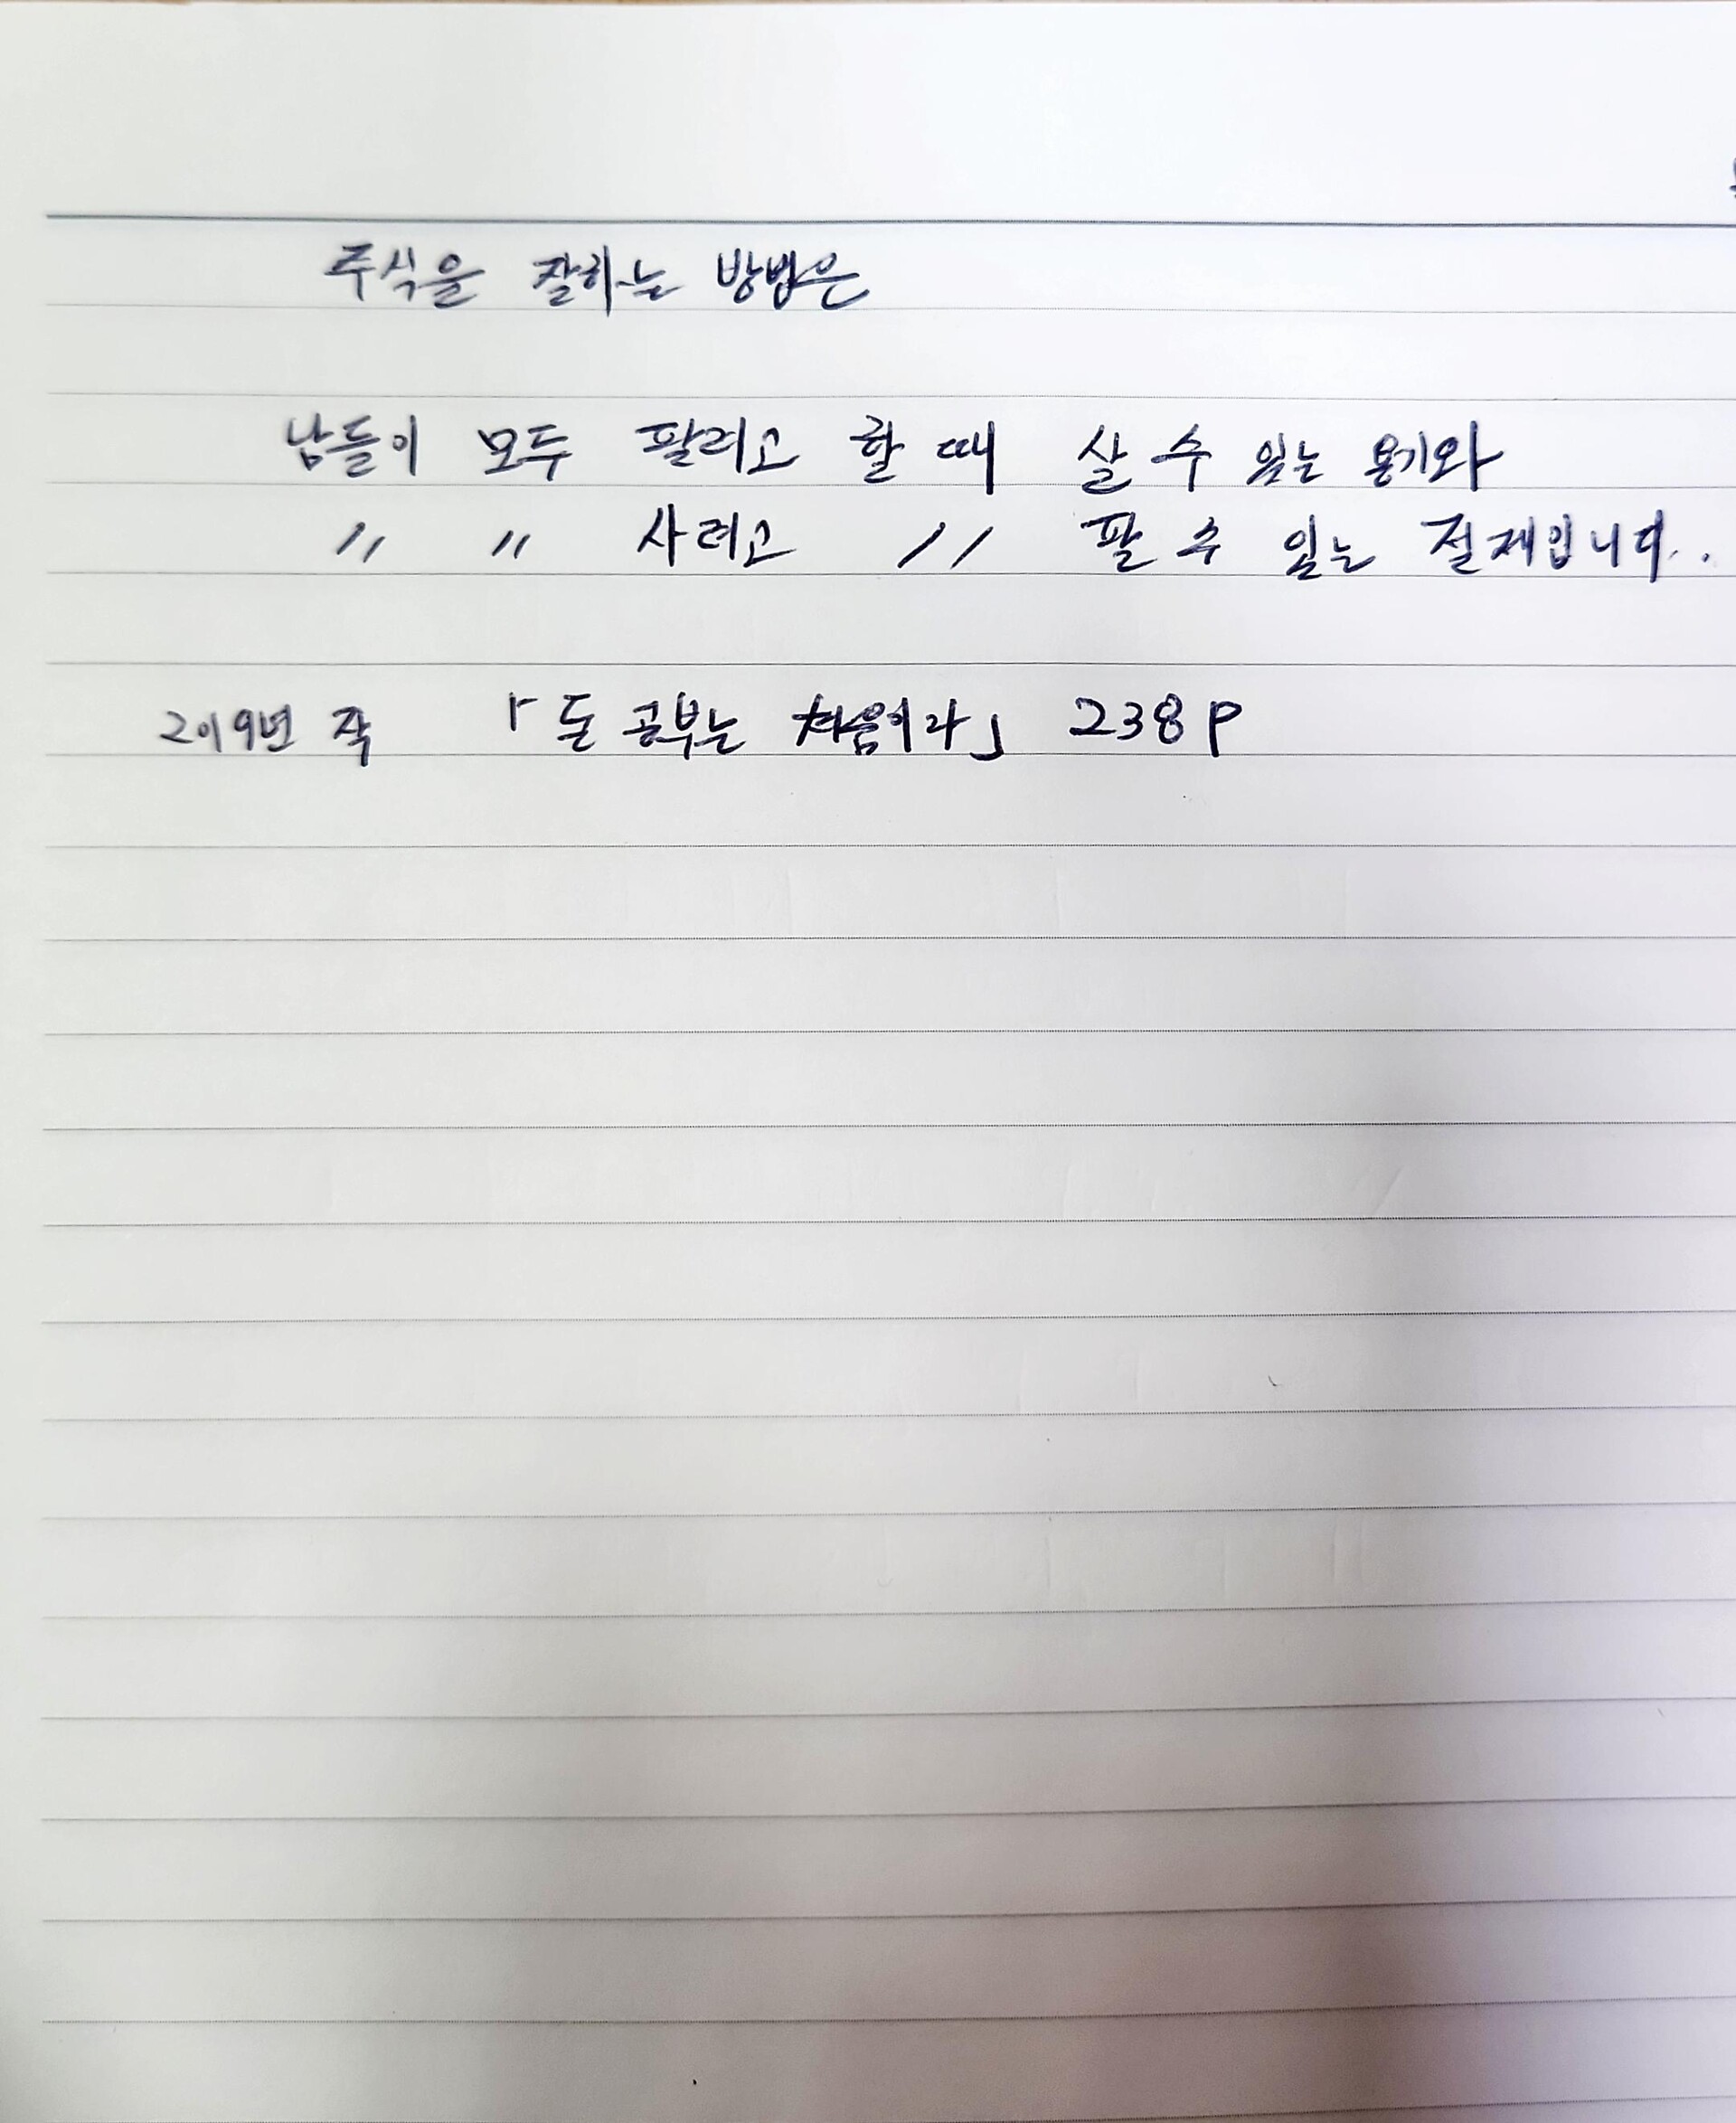 주식을 잘하는 방법은
남들이 모두 팔려고 할 때 살 수 있는 용기와
〃 〃 사려고 〃 팔 수 있는 절제입니다..
2019년 작 「돈 공부는 처음이라」 238p